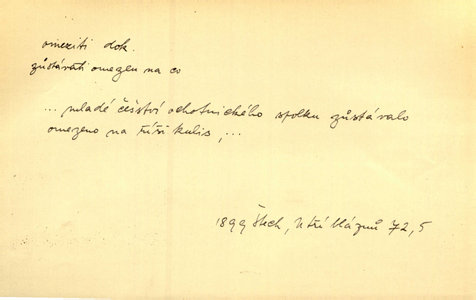 omeziti dok.
zůstávati omezen na co
... mladé češství ochotnického spolku zůstávalo
omezeno na říši kulis, ...
1899 Štech, U tří bláznů 72, 5